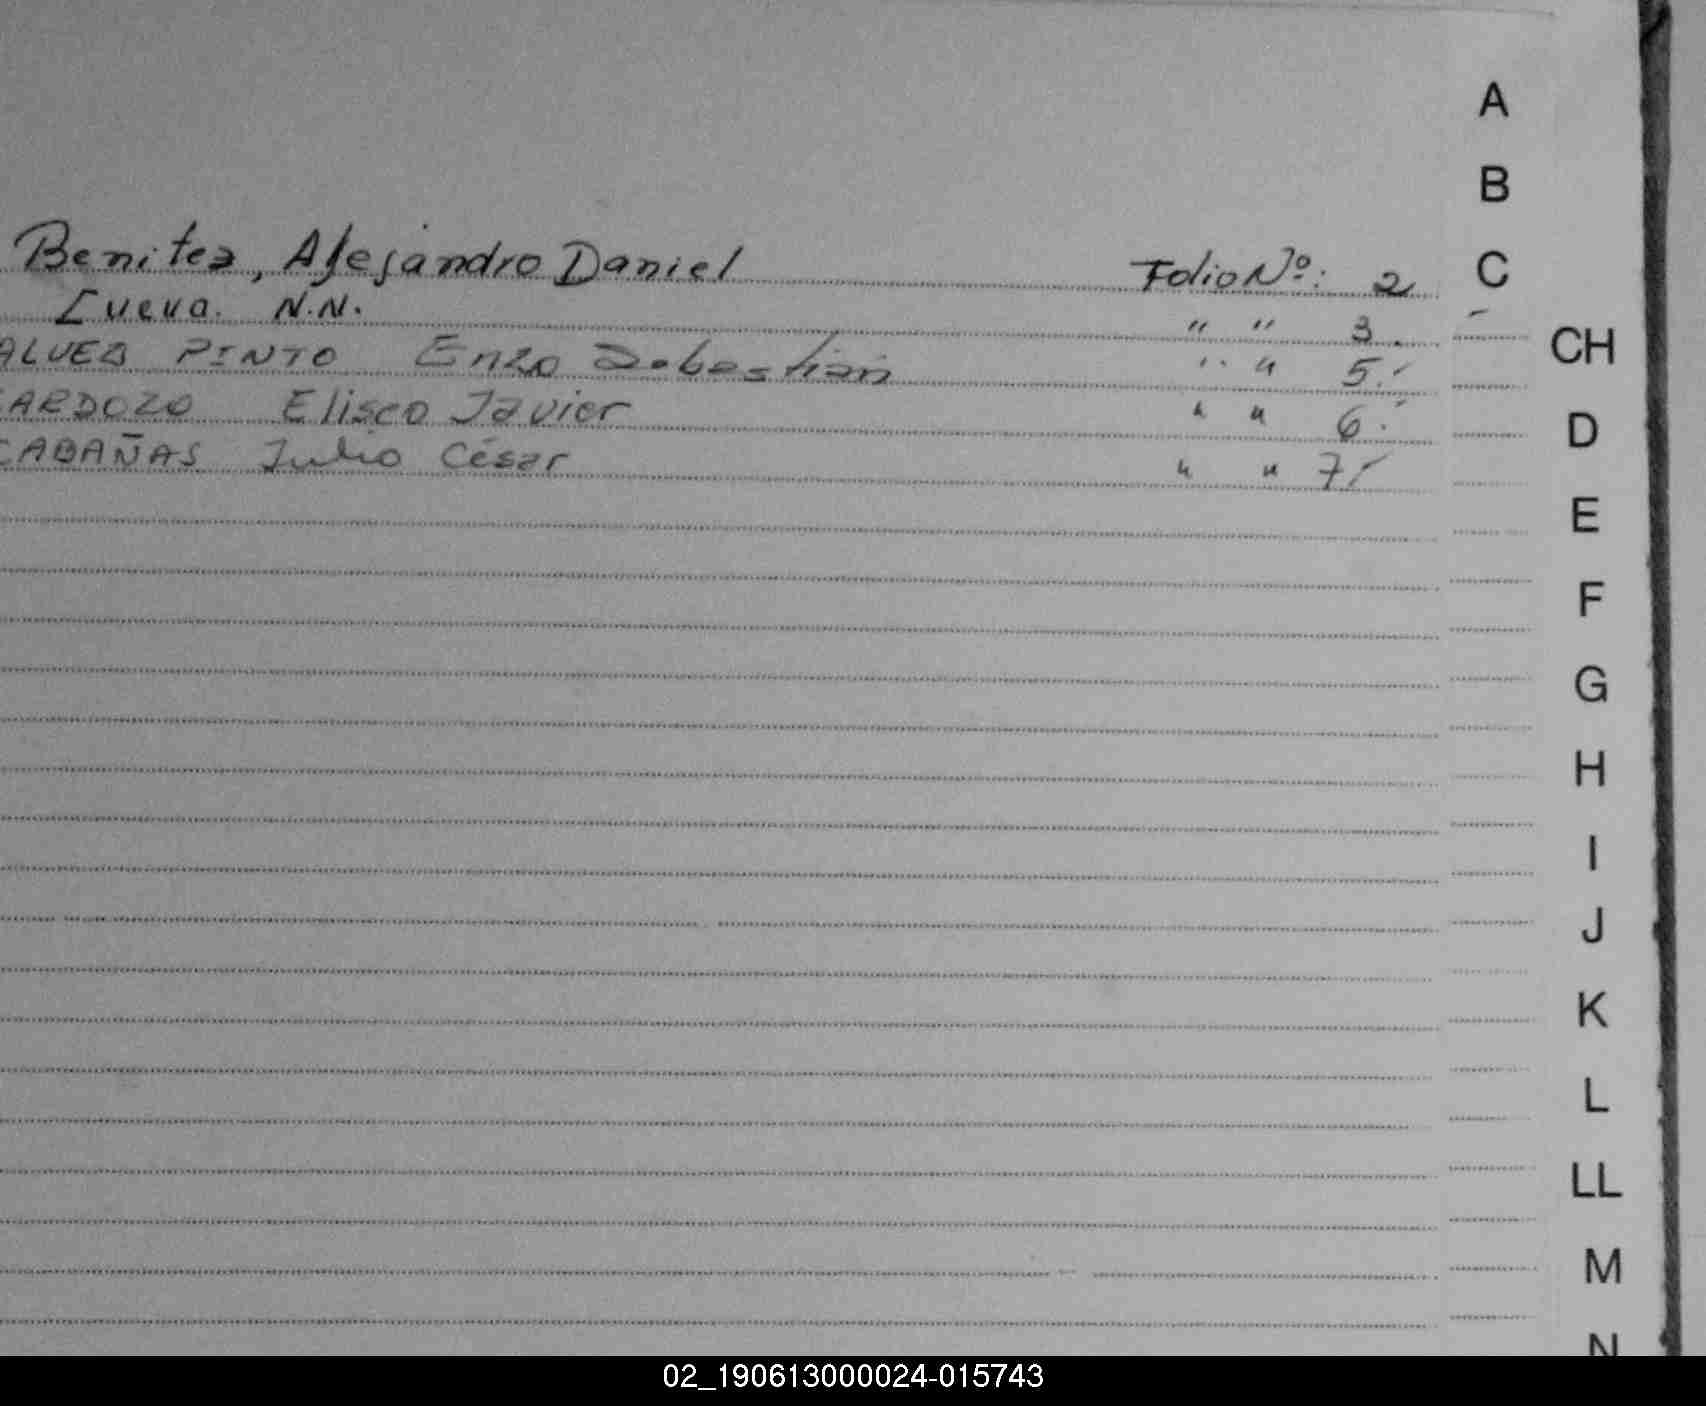 A
B
Benitez, Alejandro Daniel Folio Nº: 2
C
N.N. " " 3.
CH
PINTO Enzo Sebastian " " 5.-
ARDOZO Eliseo Javier " " 6.-
D
CABAÑAS Julio César " " 7.-
E
F
G
H
I
J
K
L
LL
M
N
02_190613000024-015743